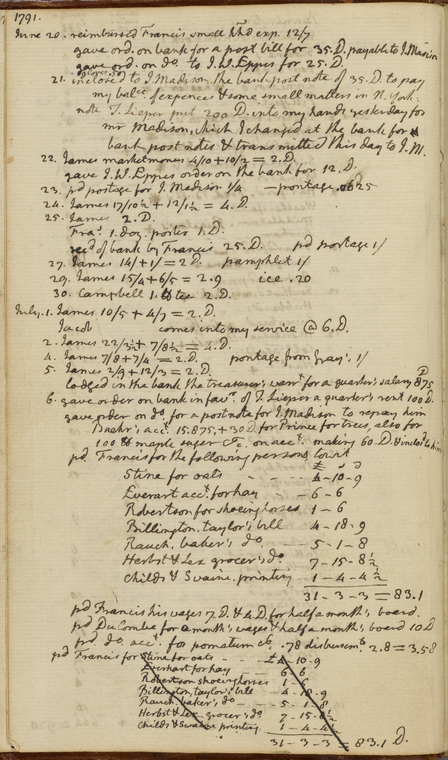 1791.
June 20. reimbursed Francis small hhd exp. 12/7
gave ord. on bank for a post bill for 35.D. payable to J. Madison
gave ord. on do to J.W. Eppes for 25.D.
21. inclosed to J. Madison the bank post note of 35.D. to pay
my balce of expences & some small matters in N. York.
note T. Lieper put 200 D. into my hands yesterday for
mr Madison, which I changed at the bank for
bank post notes & transmitted this day to J.M.
22. James market money 4/10 + 10/2 = 2.D.
gave J.W. Eppes order on the bank for 12.D.
23. pd postage for J. Madison 1/4 — portage .0625
24. James 17/10½ + 12/1½ = 4.D.
25. James 2.D.
Fras. 1. doz. porter 1.D.
recd of bank by Francis 25.D. pd portage 1/
27. James 14/ + 1/ = 2D. pamphlet 1/
29. James 15/4 + 6/5 = 2.9 ice .20
30. Campbell 1. tee 2.D.
July. 1. James 10/5 + 4/7 = 2.D.
Jacob comes into my service @ 6.D.
2. James 22/3½ + 7/8½ = 4.D.
4. James 7/8 + 7/4 = 2.D. portage from Gray's. 1/
5. James 2/9 + 12/3 = 2.D.
lodged in the bank the treasurer's warrt for a quarter's salary 875 D
6. gave order on bank in favr. of T. Lieper a quarter's rent 100 D.
gave order on do. for a post note for J. Madison to repay him
acct. 15.875, + 30 D. for Prince for trees, also for
100 lb maple sugar &c. on acct. making 60.D. & inclosd to him
pd. Francis for the following persons to wit
£ s d
Stine for oats - - - - 4-10-9
Everart acct. for hay - - 6-6
Robertson for shoeing horses 1-6
Billington. taylor's bill 4-18-9
Rauch. baker's do. - - - 5-1-8
Herbst & Lex grocer's do. 7-15-8½
Childs & Swaine. printing 1-4-4½
31-3-3 = 83.1
pd Francis his wages 7.D. & 4.D. for half a month's board.
pd DuCombe for a month's wages & half a month's board 10 D
pd. do. acct. for pomatum &c. .78 disbursemts. 2.8 = 3.58
pd Francis for Stine for oats - - £4-10-9
Everhart for hay - - 6-6
Robertson shoeing horses 1-6
Billington, taylor's bill 4-18-9
Rauch. baker's do - - - 5-1-8
Herbst & Lex. grocer's do 7-15-8½
Childs & Swaine printing 1-4-4½
31-3-3 = 83.1 D.